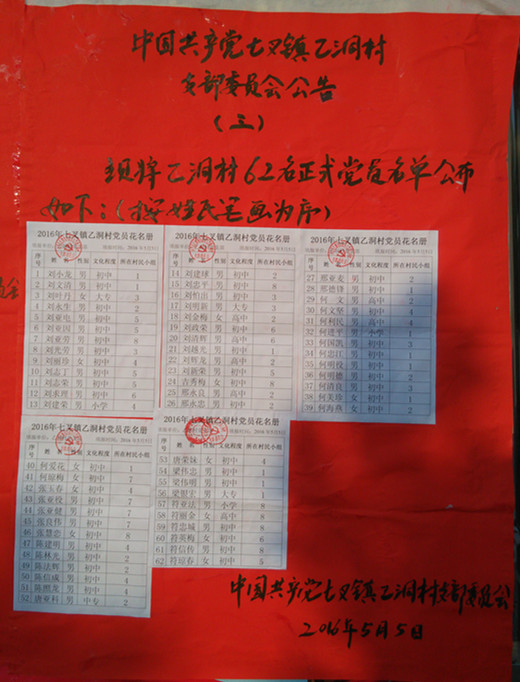 中国共产党七叉镇乙洞村
支部委员会公告
（三）
现将乙洞村62名正式党员名单公布
如下：（按姓氏笔画为序）
2016年七叉镇乙洞村党员花名册
序号 姓名 性别 文化程度 所在村民小组
1 刘小龙 男 初中 1
2 刘文清 男 初中 1
3 刘叶丹 女 大专 3
4 刘永生 男 初中 2
5 刘亚电 男 初中 5
6 刘亚因 男 初中 5
7 刘亚劳 男 初中 8
8 刘光劳 男 初中 3
9 刘丽珍 女 初中 4
10 刘志丁 男 初中
11 刘志荣 男 初中 5
12 刘永理 男 初中 6
13 刘建荣 男 小学 4
2016年七叉镇乙洞村党员花名册
序号 姓名 性别 文化程度 所在村民小组
14 刘建球 男 初中 2
15 刘忠平 男 初中 8
16 刘柏出 男 初中 3
17 刘明新 男 大专 3
18 刘金梅 女 高中 2
19 刘政荣 男 初中 6
20 刘清辉 男 高中 6
21 刘越光 男 初中 1
22 刘辉龙 男 高中 2
23 刘新荣 男 初中 5
24 吉秀梅 女 初中 8
25 邢永良 男 高中 2
26 邢永忠 男 初中 2
2016年七叉镇乙洞村党员花名册
序号 姓名 性别 文化程度 所在村民小组
27 邢亚麦 男 初中 2
28 邢德锋 男 初中 1
29 何文 男 高中 2
30 何文坚 男 初中 4
31 何利民 男 高中 4
32 何进平 男 小学
33 何国凯 男 初中 3
34 何忠江 男 初中 1
35 何明役 男 初中 1
36 何明德 男 初中 2
37 何清良 男 初中 3
38 何美珍 女 初中 1
39 何海燕 女 初中 2
2016年七叉镇乙洞村党员花名册
序号 姓名 性别 文化程度 所在村民小组
40 何爱花 女 初中 1
41 何琼梅 女 初中 7
42 张玉春 女 初中 4
43 张亚役 男 初中 7
44 张亚健 男 初中 7
45 张良伟 男 初中 7
46 张慧恋 女 初中 8
47 陈建明 男 初中 4
48 陈林光 男 初中 2
49 陈法辉 男 初中 2
50 陈信成 男 初中 4
51 陈刚龙 男 初中 4
52 唐亚科 男 中专 2
2016年七叉镇乙洞村党员花名册
序号 姓名 性别 文化程度 所在村民小组
53 唐荣妹 女 初中 4
54 梁伟忠 男 初中 1
55 梁伟明 男 初中 1
56 梁银宏 男 大专 1
57 符亚法 男 小学 8
58 符丽金 女 高中 8
59 符忠城 男 初中 8
60 符英梅 女 初中 6
61 符信传 男 初中 8
62 符琼春 女 初中 5
中国共产党七叉镇乙洞村支部委员会
2016年5月5日